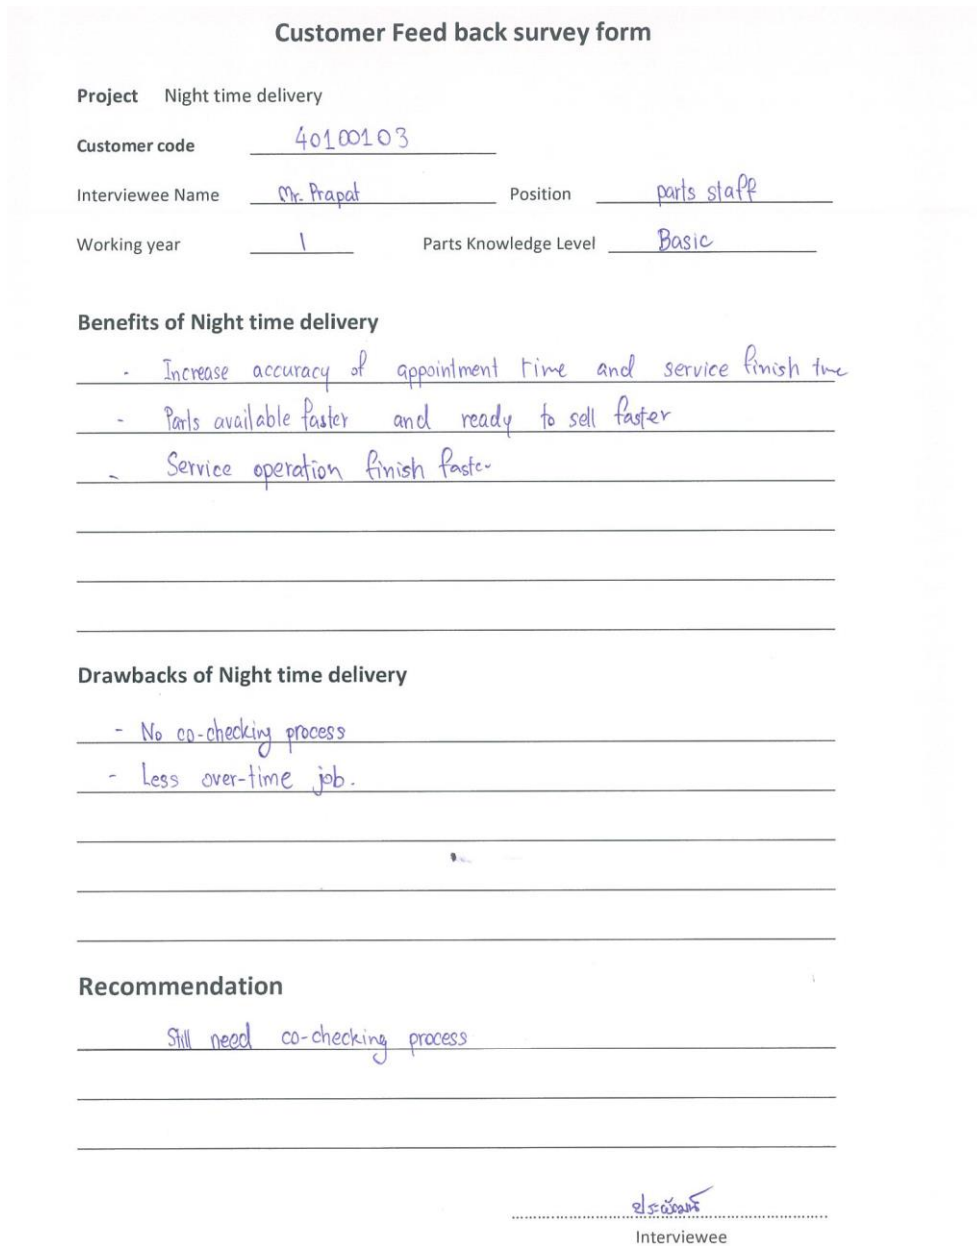 Customer Feed back survey form
Project Night time delivery
Customer code 40100103
Interviewee Name Mr. Prapat Position parts staff
Working year 1 Parts Knowledge Level Basic
Benefits of Night time delivery
- Increase accuracy of appointment time and service finish
- Parts available faster and ready to sell faster
- Service operation finish faster
Drawbacks of Night time delivery
- No co-checking process
- Less over-time job.
Recommendation
Still need co-checking process
Interviewee